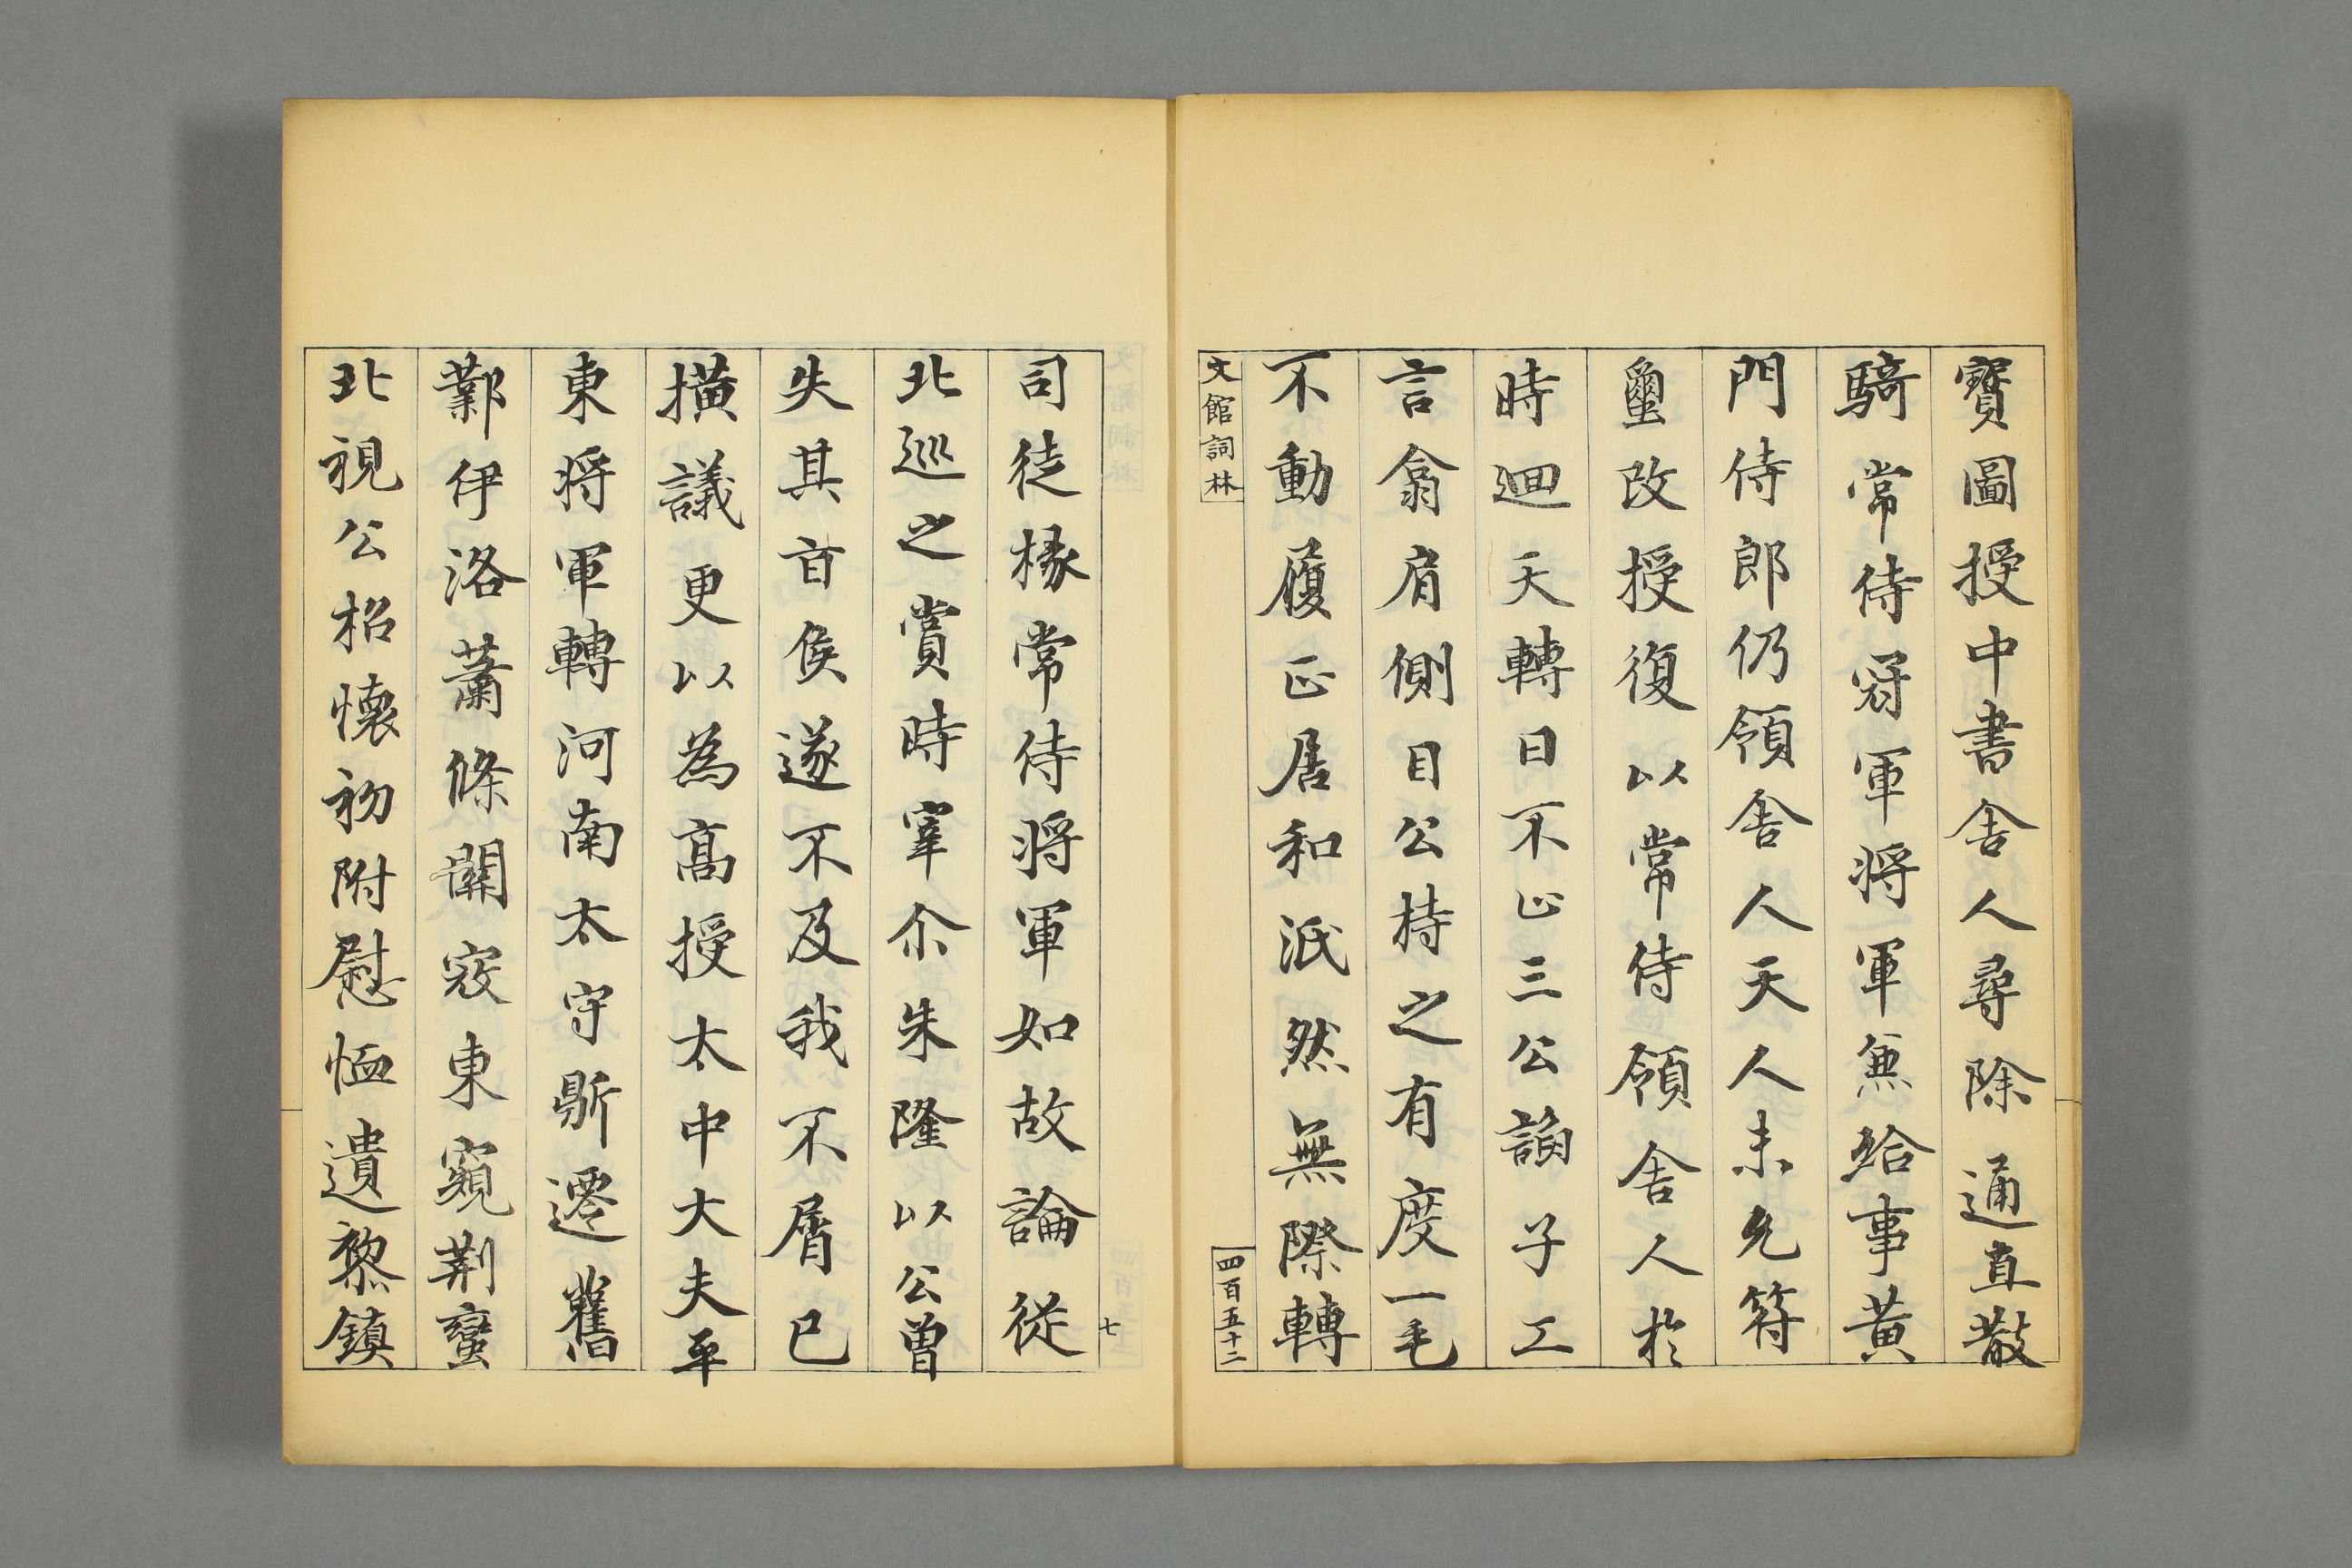 寶圖授中書舍人尋除通直散
騎常侍冠軍將軍兼給事黃
門侍郎仍領舍人天人未允符
璽改授復以常侍領舍人於
時迴天轉日不止三公諂子工
言翕肩側目公持之有度一毛
不動履正居和泯然無際轉
文館詞林
四百五十二
七
司徒掾常侍將軍如故論從
北巡之賞時宰尒朱隆以公曾
失其旨侯遂不及我不屑已
橫議更以為高授太中大夫平
東將軍轉河南太守斯遷舊
鄴伊洛蕭條關寇東窺荊蠻
北視公招懷初附慰恤遺黎鎮